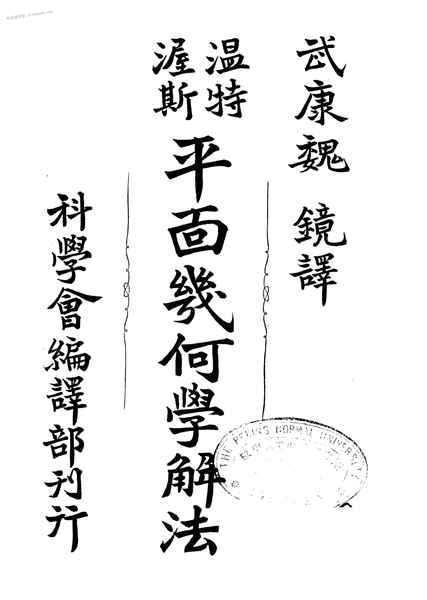 武康魏　鏡譯
溫特
渥斯
平面幾何學解法
科學會編譯部刊行
THE PEKING NORMAL UNIVERSITY